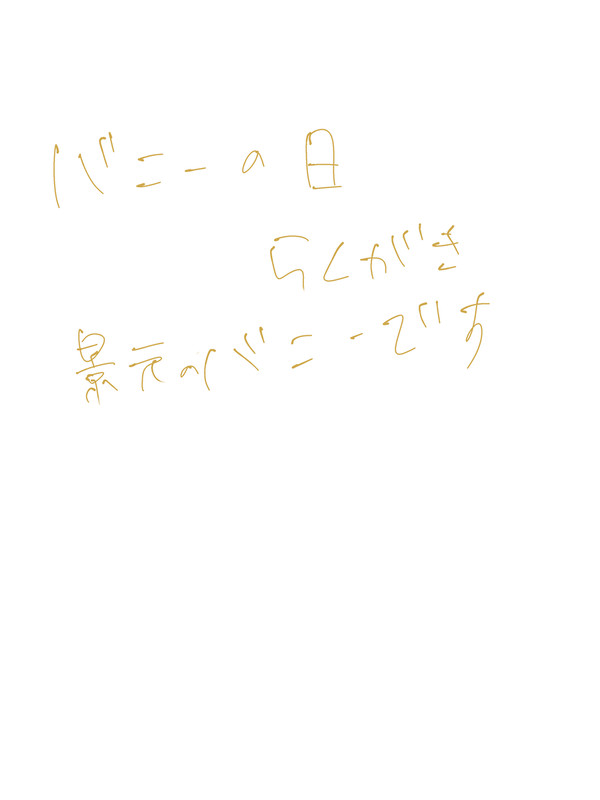 バニーの日
らくがき
景元のバニーです